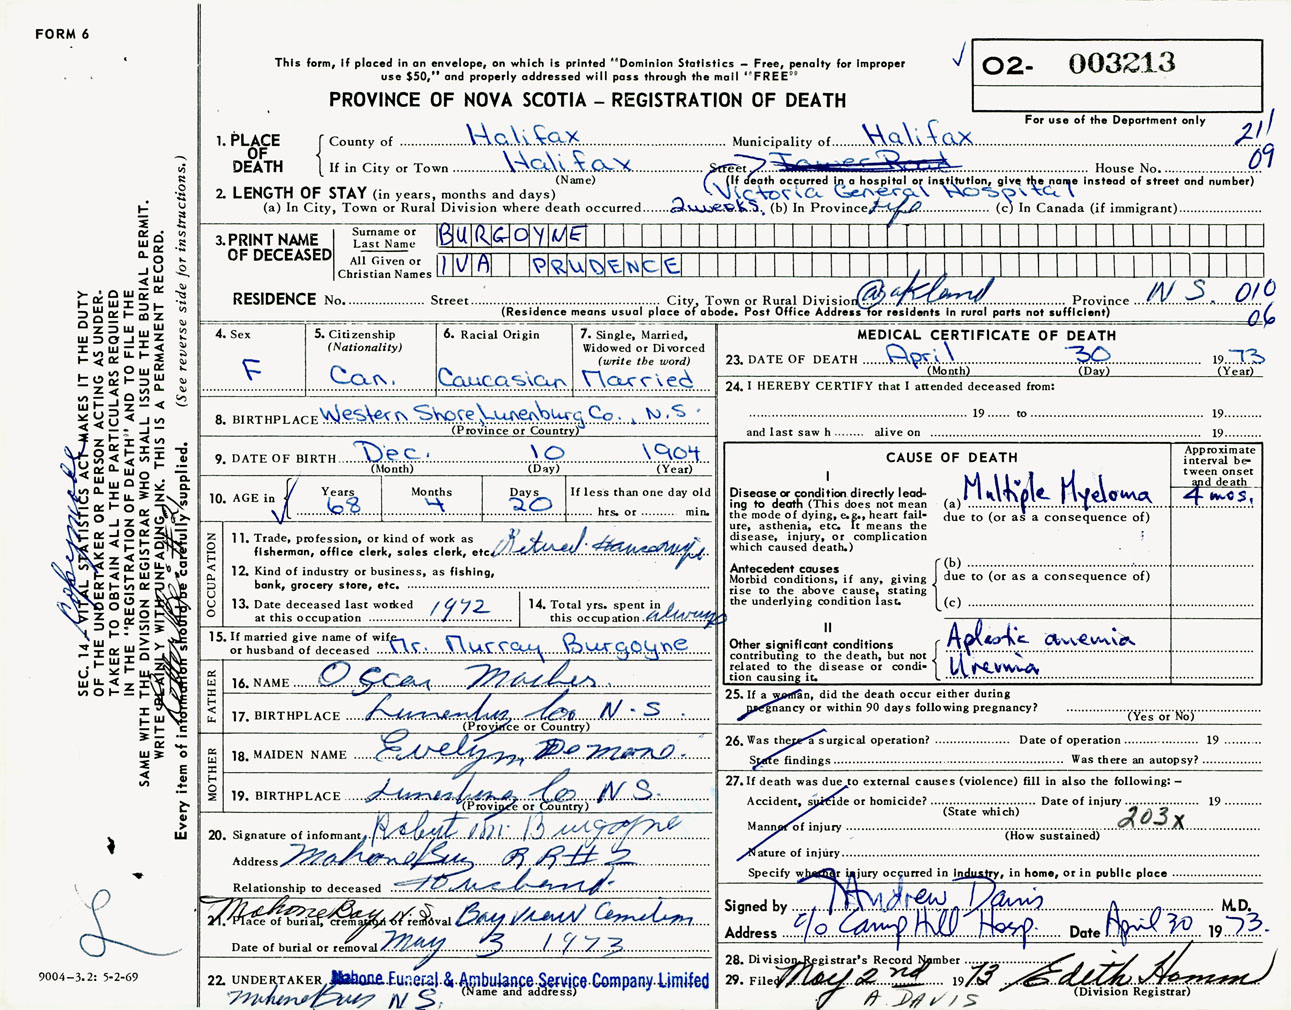 FORM 6
This form, if placed in an envelope, on which is printed "Dominion Statistics – Free, penalty for improper
use $50," and properly addressed will pass through the mail "FREE"
PROVINCE OF NOVA SCOTIA – REGISTRATION OF DEATH
✓ 02- 003213
For use of the Department only
211
09
1. PLACE OF DEATH
County of Halifax Municipality of Halifax
If in City or Town Halifax Street Tower Road House No.
(Name) (If death occurred in a hospital or institution, give the name instead of street and number)
Victoria General Hospital
2. LENGTH OF STAY (in years, months and days)
(a) In City, Town or Rural Division where death occurred 2 weeks. (b) In Province life (c) In Canada (if immigrant)
3. PRINT NAME OF DECEASED
Surname or Last Name BURGOYNE
All Given or Christian Names IVA PRUDENCE
RESIDENCE No. Street City, Town or Rural Division Oakland Province N S. 010
(Residence means usual place of abode. Post Office Address for residents in rural parts not sufficient) 06
4. Sex F
5. Citizenship (Nationality) Can.
6. Racial Origin Caucasian
7. Single, Married, Widowed or Divorced (write the word) Married
8. BIRTHPLACE Western Shore, Lunenburg Co., N.S.
(Province or Country)
9. DATE OF BIRTH Dec. 10 1904
(Month) (Day) (Year)
10. AGE in Years 68 Months 4 Days 20 If less than one day old hrs. or min.
OCCUPATION
11. Trade, profession, or kind of work as
fisherman, office clerk, sales clerk, etc. Retired Housewife
12. Kind of industry or business, as fishing,
bank, grocery store, etc.
13. Date deceased last worked
at this occupation 1972
14. Total yrs. spent in
this occupation always
15. If married give name of wife
or husband of deceased Mr. Murray Burgoyne
FATHER
16. NAME Oscar
17. BIRTHPLACE Lunenburg Co N.S
(Province or Country)
MOTHER
18. MAIDEN NAME Evelyn
19. BIRTHPLACE Lunenburg Co N S.
(Province or Country)
20. Signature of informant Robert M. Burgoyne
Address Mahone Bay R R # 2
Relationship to deceased Husband.
Mahone Bay N.S. Bay View
21. Place of burial, cremation or removal
Date of burial or removal May 3 1973
22. UNDERTAKER Mahone Funeral & Ambulance Service Company Limited
(Name and address)
Mahone Bay N S.
MEDICAL CERTIFICATE OF DEATH
23. DATE OF DEATH April 30 1973
(Month) (Day) (Year)
24. I HEREBY CERTIFY that I attended deceased from:
19 to 19
and last saw h alive on 19
CAUSE OF DEATH
Approximate interval between onset and death
I
Disease or condition directly leading to death (This does not mean the mode of dying, e.g., heart failure, asthenia, etc. It means the disease, injury, or complication which caused death.)
(a) Multiple Myeloma 4 mos.
due to (or as a consequence of)
Antecedent causes
Morbid conditions, if any, giving rise to the above cause, stating the underlying condition last.
(b)
due to (or as a consequence of)
(c)
II
Other significant conditions
contributing to the death, but not related to the disease or condition causing it.
Aplastic anemia
Uremia
25. If a woman, did the death occur either during
pregnancy or within 90 days following pregnancy?
(Yes or No)
26. Was there a surgical operation? Date of operation 19
State findings Was there an autopsy?
27. If death was due to external causes (violence) fill in also the following: –
Accident, suicide or homicide? Date of injury 19
(State which)
Manner of injury 203x
(How sustained)
Nature of injury
Specify whether injury occurred in Industry, in home, or in public place
Signed by Andrew Davis M.D.
Address c/o Camp Hill Hosp. Date April 30 1973.
28. Division Registrar's Record Number
29. Filed May 2nd 1973 Edith Hamm
(Division Registrar)
A. DAVIS
SEC. 14 – VITAL STATISTICS ACT MAKES IT THE DUTY
OF THE UNDERTAKER OR PERSON ACTING AS UNDER-
TAKER TO OBTAIN ALL THE PARTICULARS REQUIRED
IN THE "REGISTRATION OF DEATH" AND TO FILE THE
SAME WITH THE DIVISION REGISTRAR WHO SHALL ISSUE THE BURIAL PERMIT.
WRITE PLAINLY WITH UNFADING INK. THIS IS A PERMANENT RECORD.
Every item of information should be carefully supplied. (See reverse side for instructions.)
9004–3.2: 5-2-69